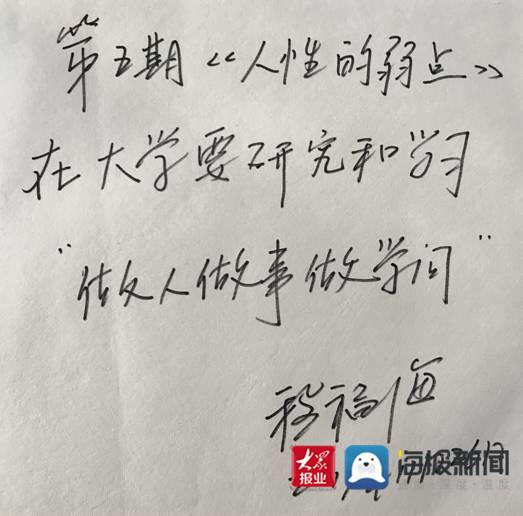 第五期《人性的弱点》
在大学要研究和学习
"做人做事做学问"
程福海
大众报业 海报新闻